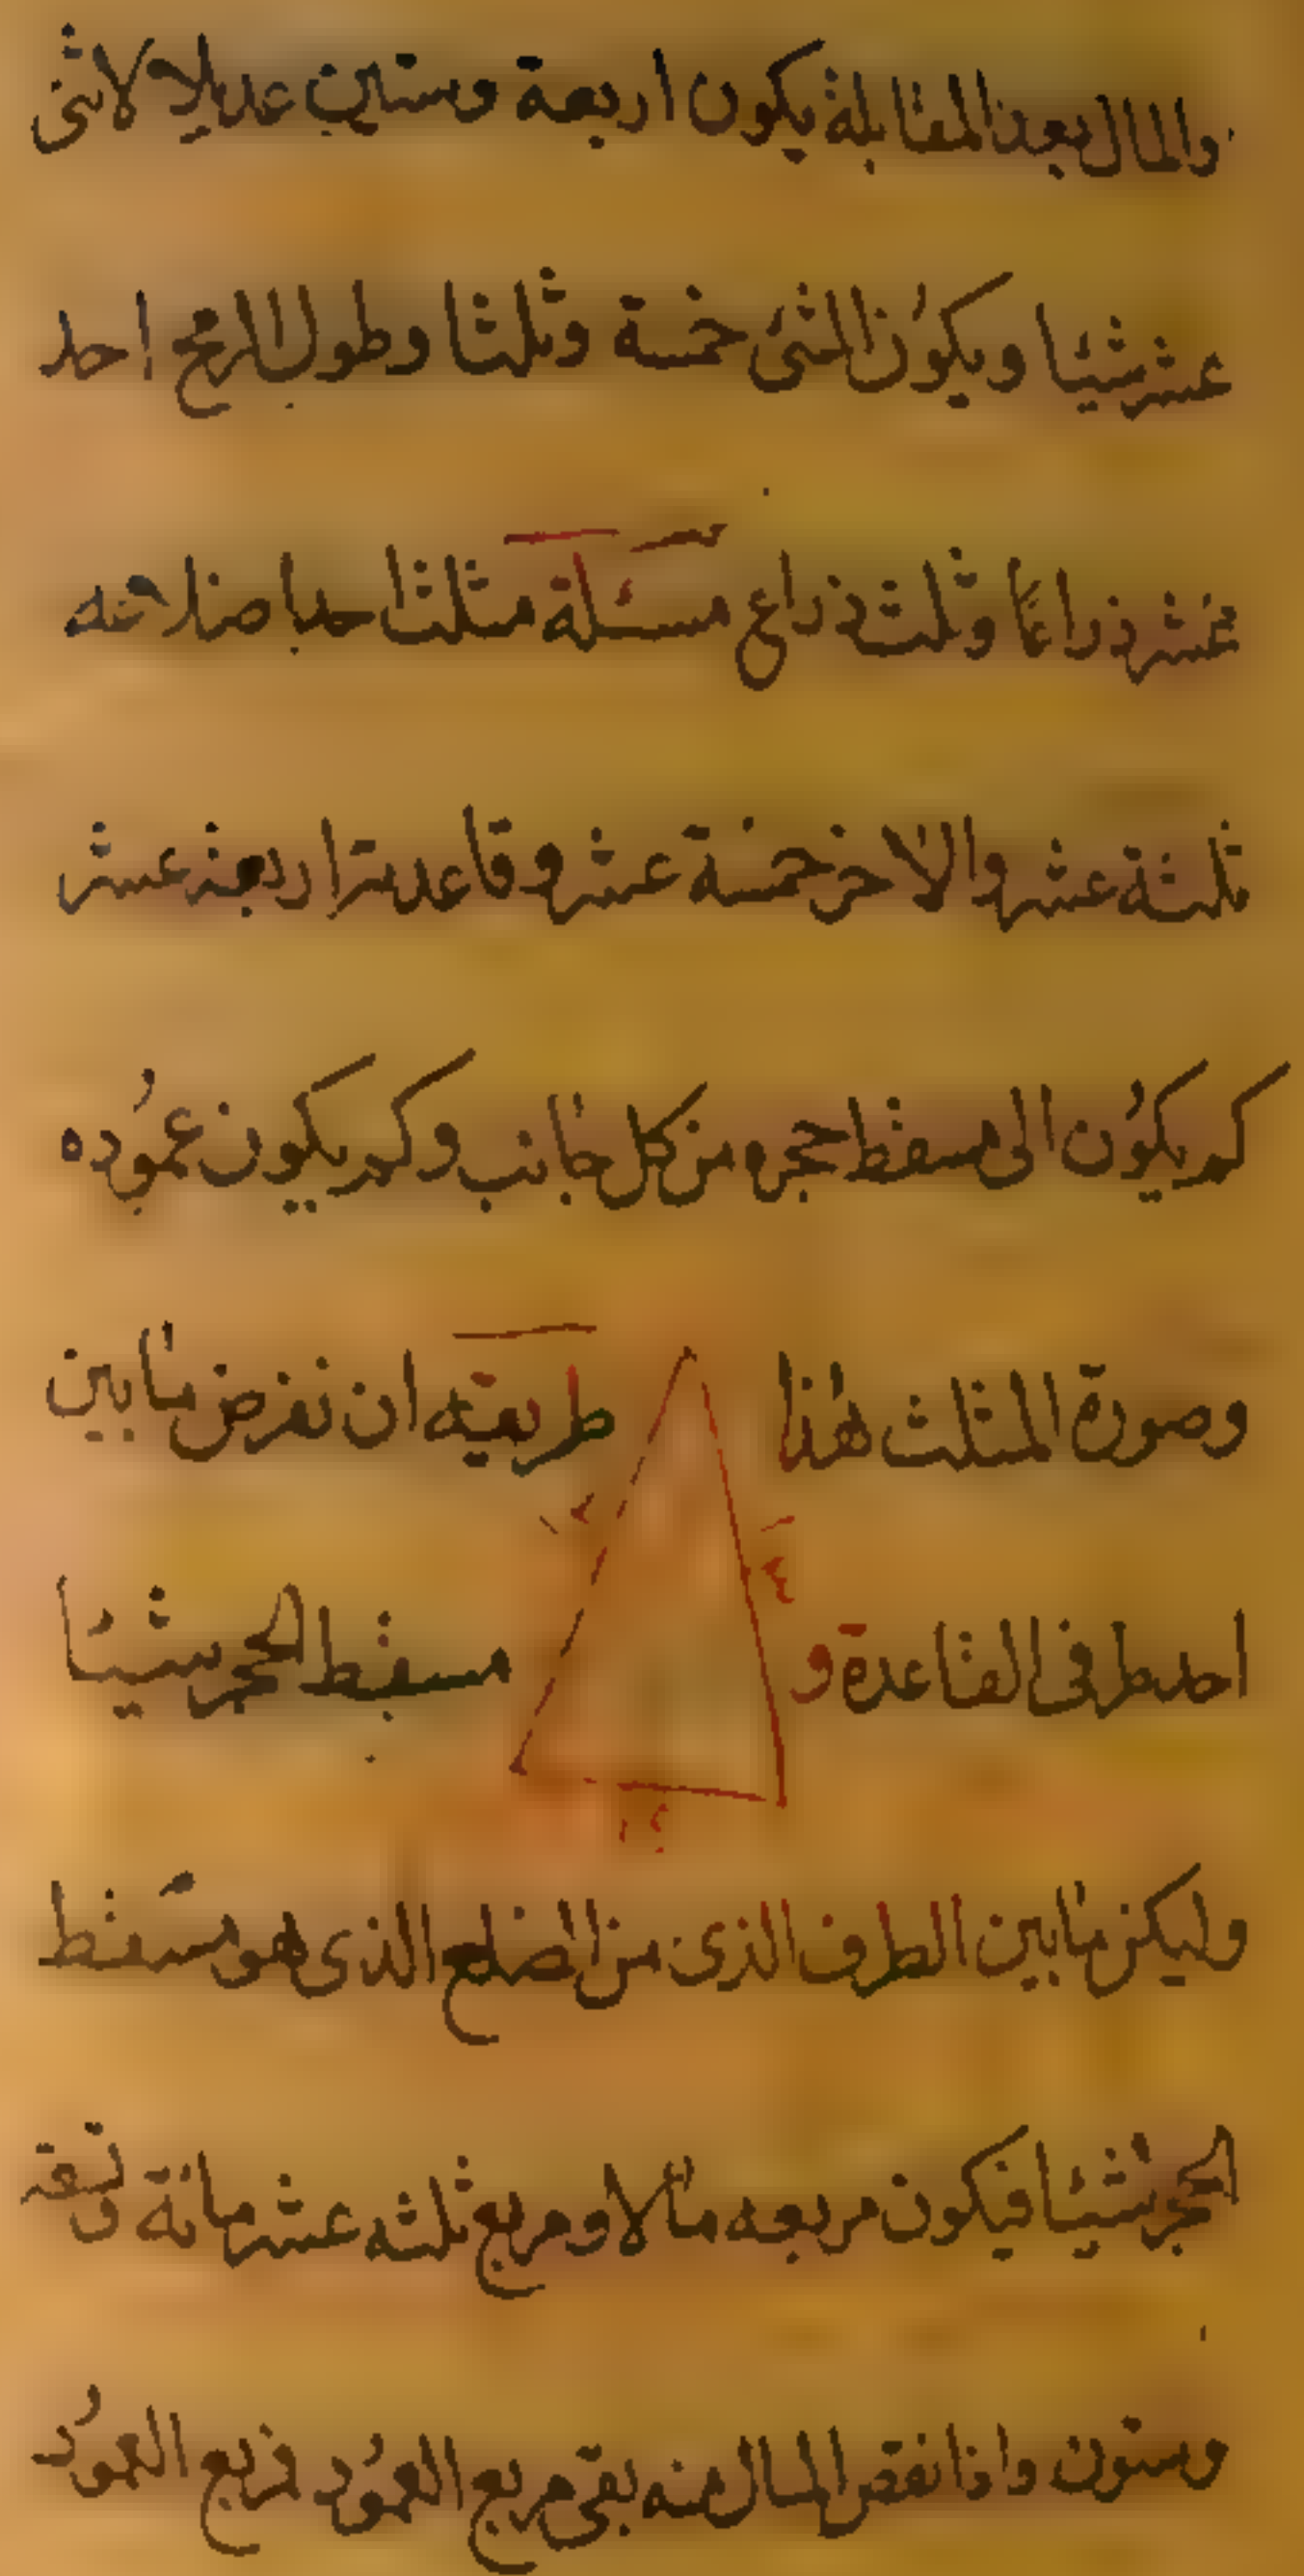 والمال بعد المقابلة يكون اربعة وستين عديلا لاثنى
عشر شيئا ويكون الشى خمسة وثلثا وطول الرمح احد
عشر ذراعا وثلث ذراع مسئلة مثلث احد اضلاعه
ثلثة عشر والاخر خمسة عشر وقاعدته اربعة عشر
كم يكون الى مسقط حجره من كل جانب وكم يكون عموده
وصورة المثلث هذا طريقه ان نفرض ما بين
احد طرفى القاعدة و مسقط الحجر شيئا
وليكن ما بين الطرف الذى من الضلع الذى هو مسقط
الحجر شيئا فيكون مربعه مالا ومربع ثلثة عشر مائة وتسعة
وستون واذا نقص المال منه بقى مربع العمود فربع العمود